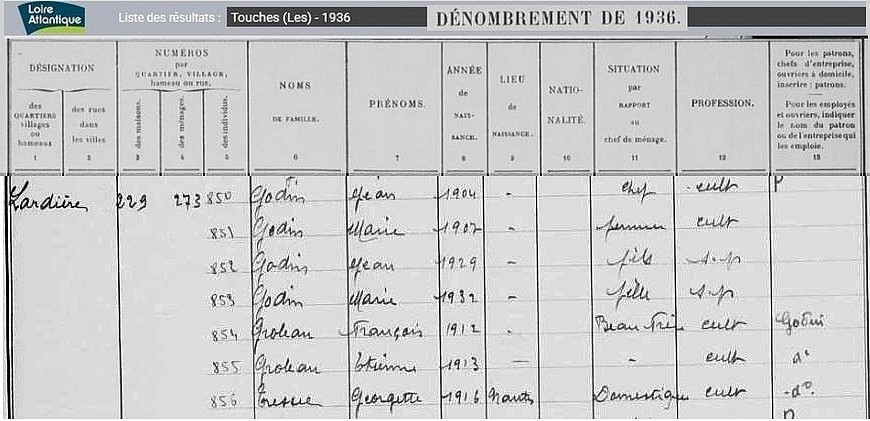 Loire Atlantique
Liste des résultats : Touches (Les) - 1936
DÉNOMBREMENT DE 1936.
DÉSIGNATION
des QUARTIERS villages ou hameaux
1
des rues dans les villes
2
NUMÉROS par QUARTIER, VILLAGE, hameau ou rue.
des maisons.
3
des ménages.
4
des individus.
5
NOMS DE FAMILLE.
6
PRÉNOMS.
7
ANNÉE de NAISSANCE.
8
LIEU de NAISSANCE.
9
NATIONALITÉ.
10
SITUATION par RAPPORT au chef de ménage.
11
PROFESSION.
12
Pour les patrons, chefs d'entreprise, ouvriers à domicile, inscrire : patrons.
Pour les employés et ouvriers, indiquer le nom du patron ou de l'entreprise qui les emploie.
13
Lardière 229 273 850 Godin Jean 1904 - chef cult P
851 Godin Marie 1907 - femme cult
852 Godin Jean 1929 - fils s.p
853 Godin Marie 1932 - fille s.p
854 Groleau François 1912 - Beau Frère cult Godin
855 Groleau Etienne 1913 - - cult d°
856 Georgette 1916 Nantes Domestique cult -d°-